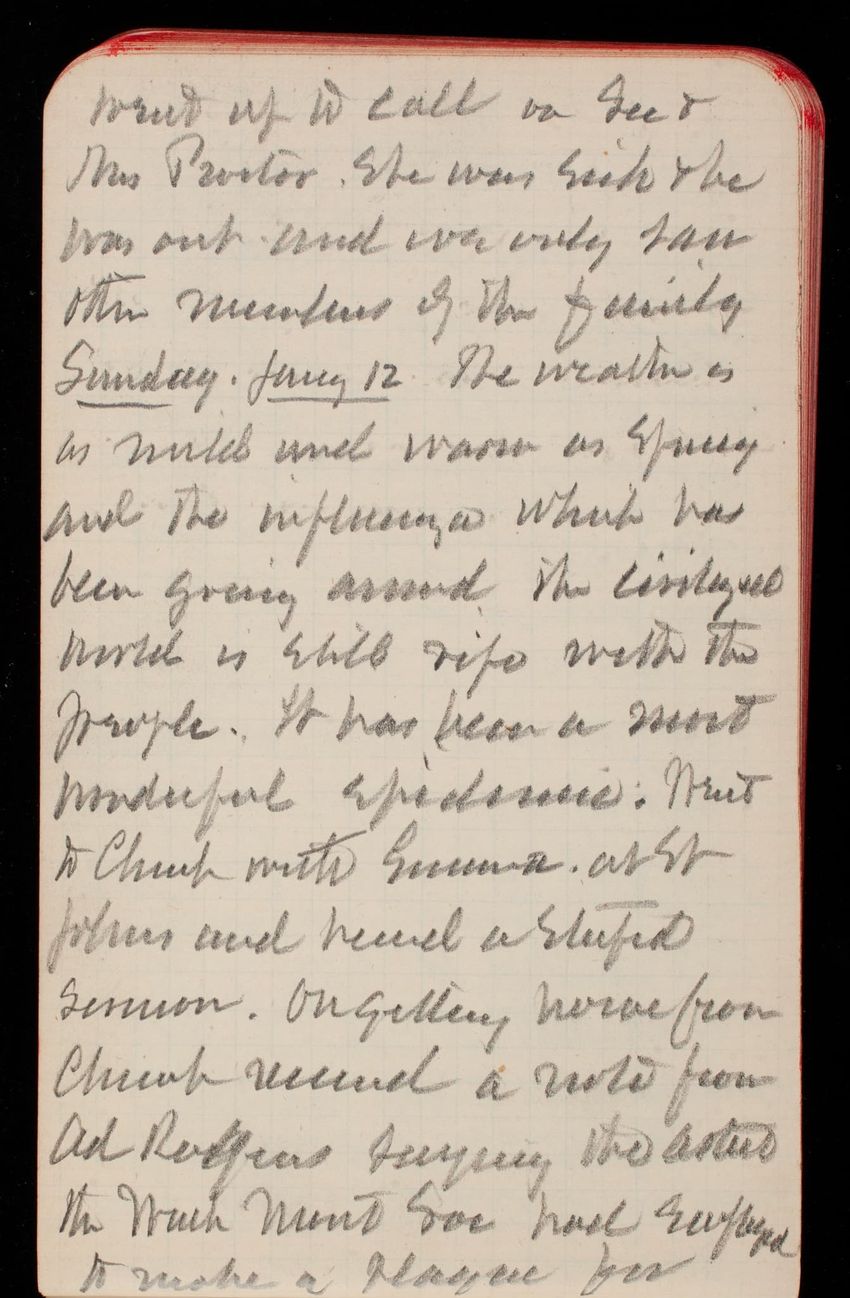 Went up to call on Sec &
Mrs Proctor. She was sick & he
was out and we only saw
other members of the family
Sunday. Jany 12 The weather is
as mild and warm as Spring
and the influenza which has
been going around the civilized
world is still rife with the
people. It has been a most
wonderful epidemic. Went
to Church with Emma. at St
Johns and heard a stupid
Sermon. On getting home from
Church received a note from
Ad Rodgers saying the artist
the Wash Mont Soc had Employed
to make a plaque for